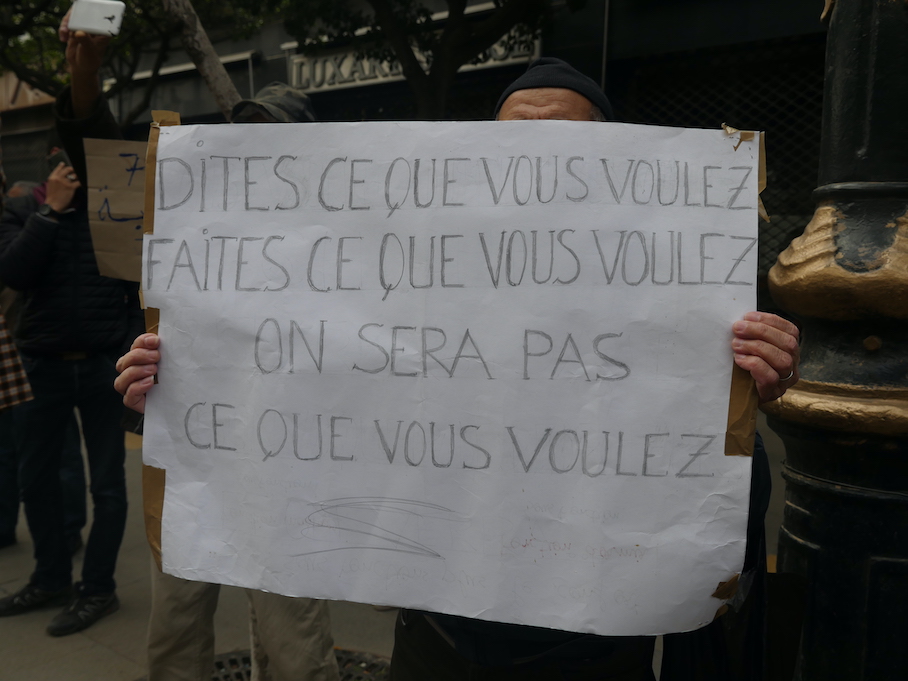 DITES CE QUE VOUS VOULEZ
FAITES CE QUE VOUS VOULEZ
ON SERA PAS
CE QUE VOUS VOULEZ